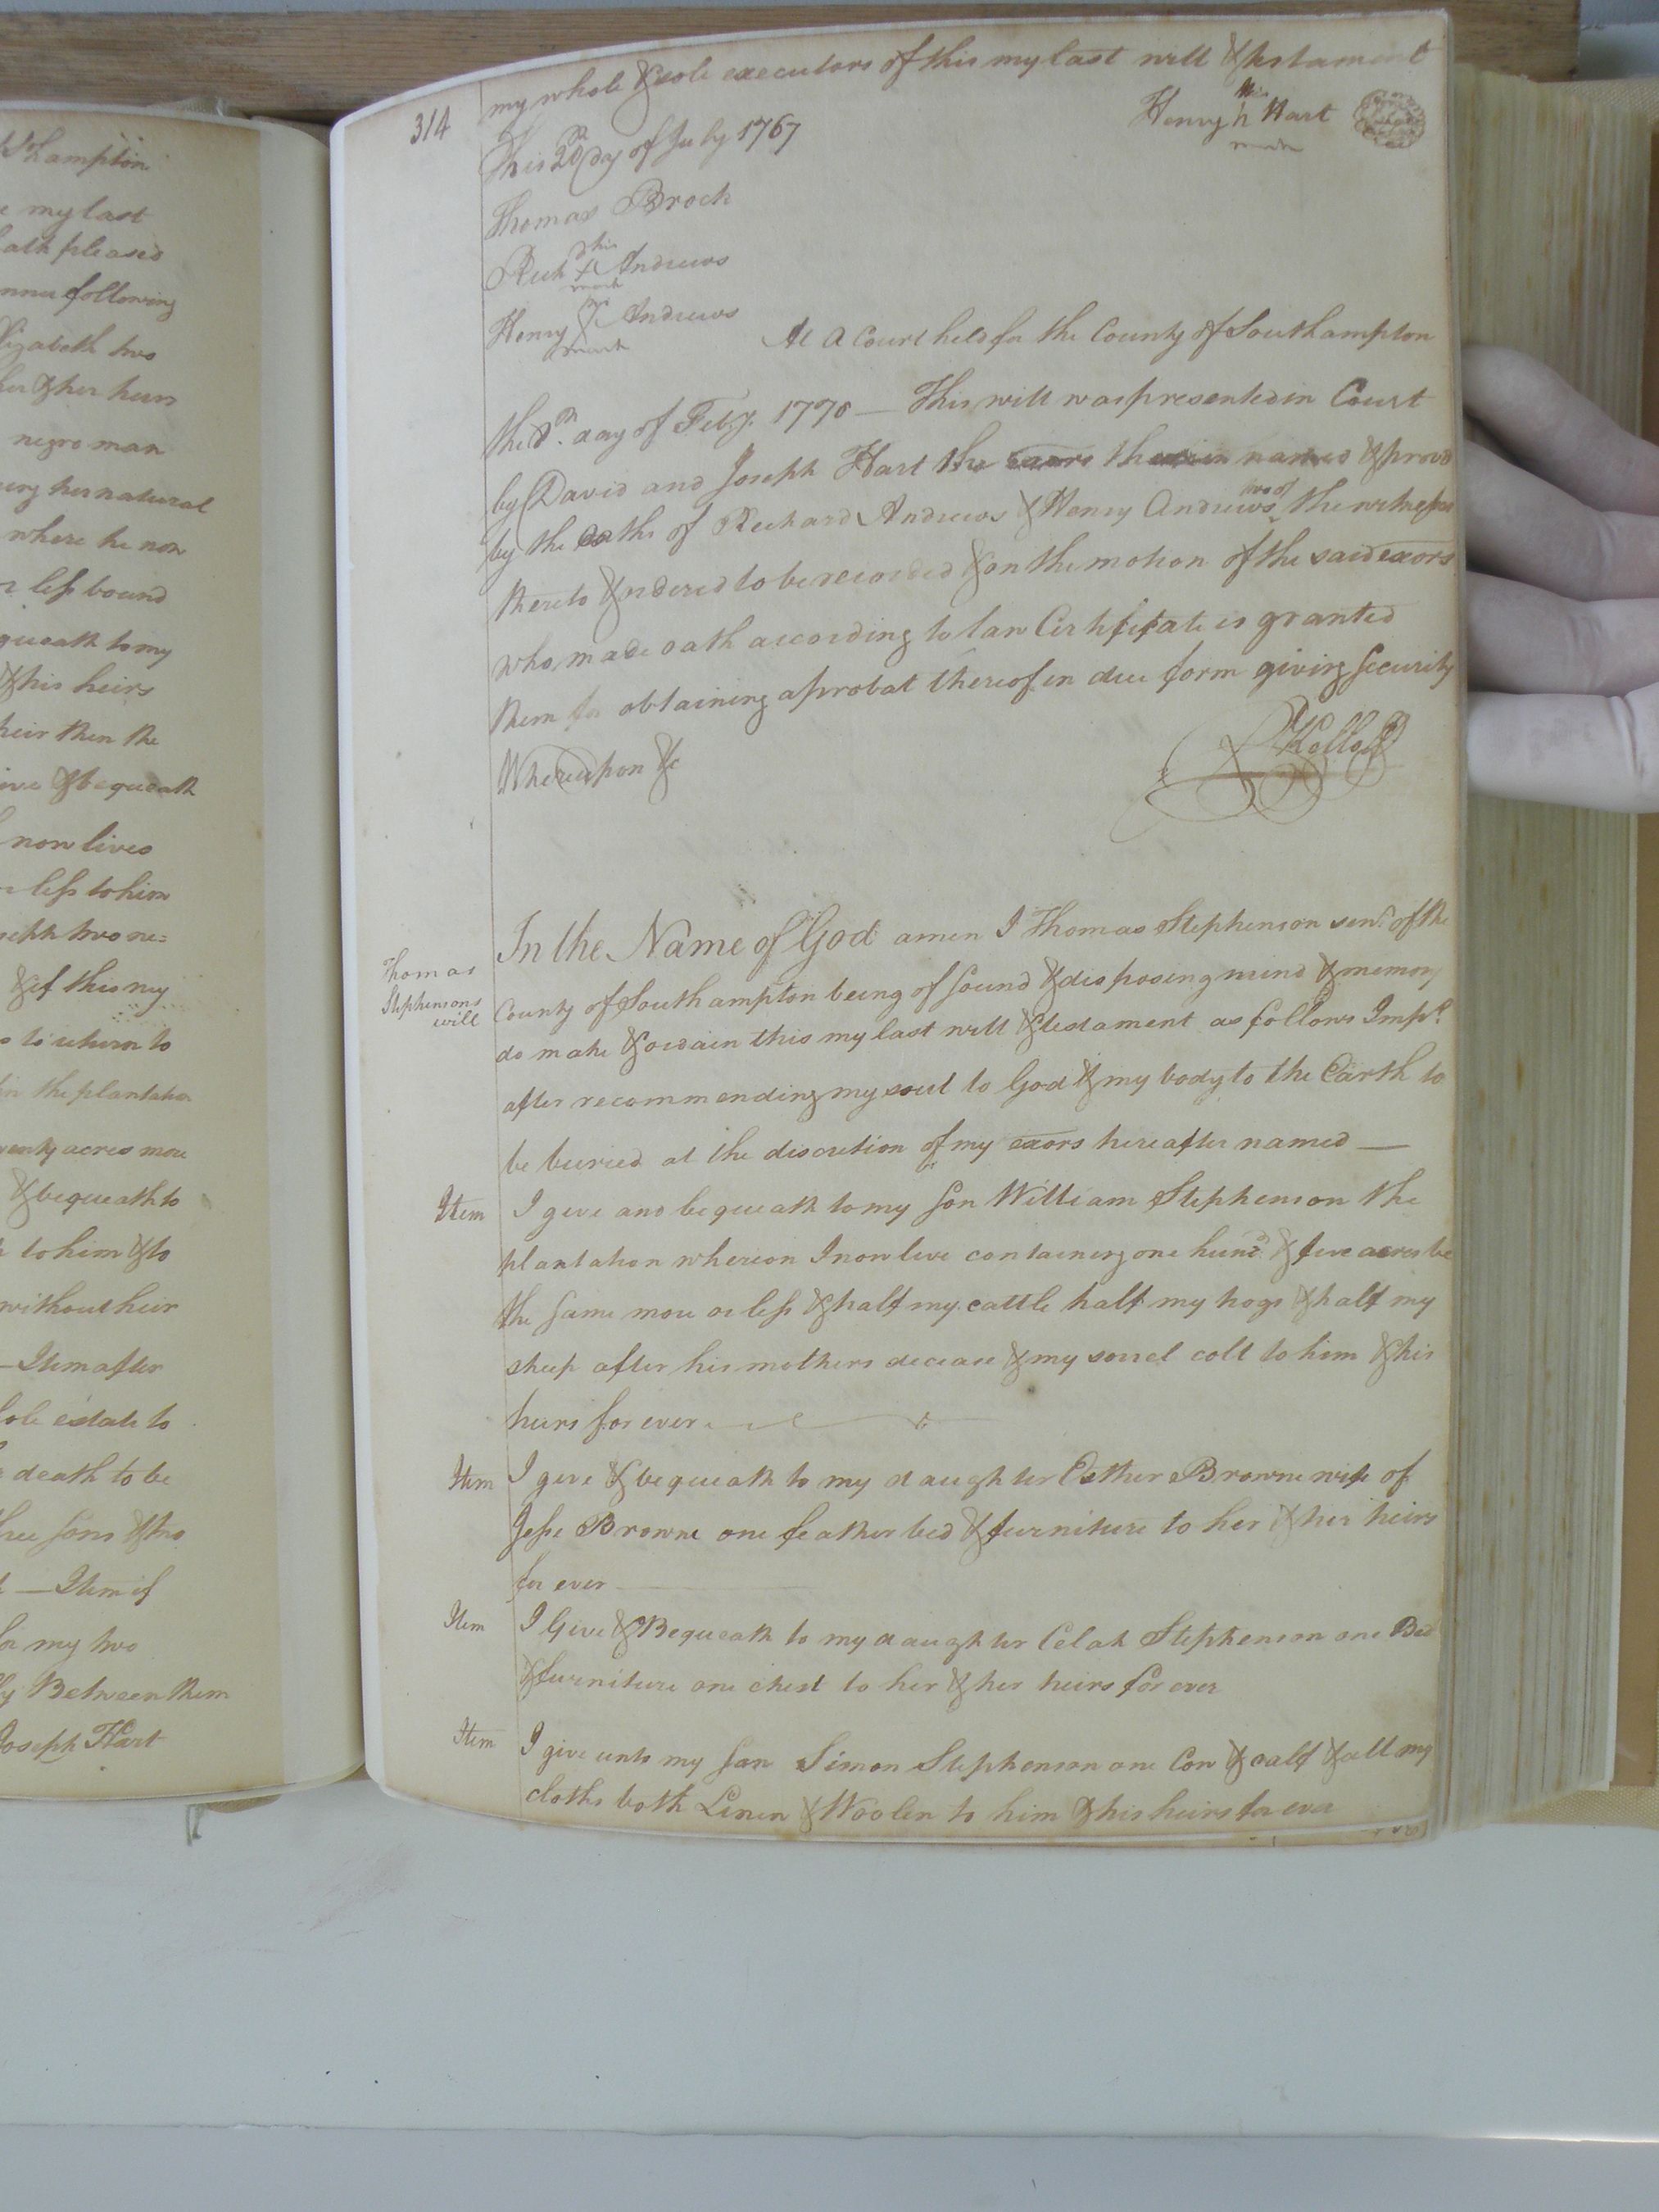 S.hampton
my last
hath pleased
manner following
Elizabeth two
her & her heirs
negro man
during her natural
where he now
or less bound
bequeath to my
& his heirs
heir then the
give & bequeath
now lives
or less to him
Joseph two ne=
& if this my
to return to
in the plantation
twenty acres more
& bequeath to
to him & to
without heir
— Item after
sole estate to
death to be
three sons & two
— Item if
for my two
Between them
Joseph Hart
314
my whole & sole executors of this my last will & testament
This 2d day of July 1767
Henry his h mark Hart
Thomas Brock
Richd his X mark Andrews
Henry his mark Andrews
At a Court held for the County of Southampton
the 8th. day of Feby. 1770 — This will was presented in Court
by David and Joseph Hart the exors therein named & provd
by the oaths of Richard Andrews & Henry Andrews two of the witnesses
thereto & ordered to be recorded & on the motion of the said exors
who made oath according to law Certificate is granted
them for obtaining a probat thereof in due form giving security
Whereupon &c
Thomas
Stephensons
will
In the Name of God amen I Thomas Stephenson senr. of the
County of Southampton being of sound & disposing mind & memory
do make & ordain this my last will & testament as follows Imps.
after recommending my soul to God & my body to the Earth to
be buried at the discretion of my exors hereafter named —
Item I give and bequeath to my son William Stephenson the
plantation whereon I now live containing one hund. & five acres be
the same more or less & half my cattle half my hogs & half my
sheep after his mothers decease & my sorrel colt to him & his
heirs for ever
Item I give & bequeath to my daughter Esther Browne wife of
Jesse Browne one feather bed & furniture to her & her heirs
for ever
Item I Give & Bequeath to my daughter Celah Stephenson one Bed
& furniture one chest to her & her heirs for ever
Item I give unto my son Simon Stephenson one Cow & calf & all my
cloths both Linen & Woolen to him & his heirs for ever